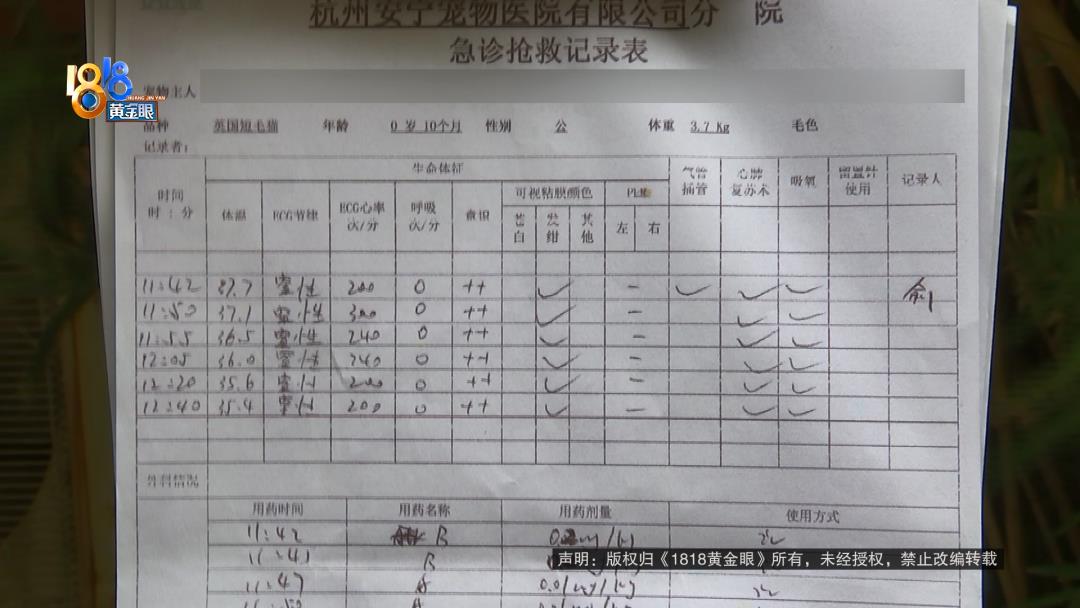 杭州安宁宠物医院有限公司分 院
急诊抢救记录表
1818
HUANG JIN YAN
黄金眼
宠物主人
品种 英国短毛猫 年龄 0 岁 10个月 性别 公 体重 3.7 Kg 毛色
记录者:
时间 时 : 分 生命体征 气管插管 心肺复苏术 吸氧 留置针使用 记录人
体温 ECG节律 ECG心率次/分 呼吸次/分 意识 可视粘膜颜色 PLR
苍白 发绀 其他 左 右
11:42 37.7 窦性 200 0 ++ ✓ - ✓ ✓ ✓
11:50 37.1 窦性 300 0 ++ ✓ - ✓ ✓
11:55 36.5 窦性 240 0 ++ ✓ - ✓ ✓
12:05 36.0 窦性 240 0 ++ ✓ - ✓ ✓
12:20 35.6 窦性 200 0 ++ ✓ - ✓ ✓
12:40 35.4 窦性 200 0 ++ ✓ - ✓ ✓
外科情况
用药时间 用药名称 用药剂量 使用方式
11:42 B
11:43 B
11:47
声明:版权归《1818黄金眼》所有,未经授权,禁止改编转载